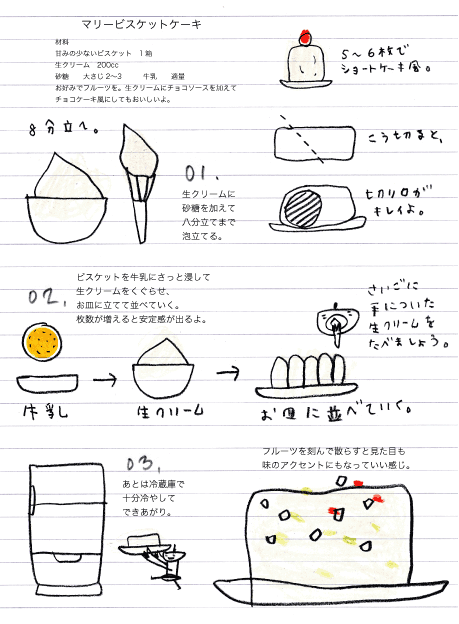 マリービスケットケーキ
材料
甘みの少ないビスケット　1箱
生クリーム　200cc
砂糖　　大さじ2〜3　　　牛乳　　適量
お好みでフルーツを。生クリームにチョコソースを加えて
チョコケーキ風にしてもおいしいよ。
5〜6枚で
ショートケーキ風。
8分立て。
01.
生クリームに
砂糖を加えて
八分立てまで
泡立てる。
こう切ると、
切り口が
キレイよ。
02.
ビスケットを牛乳にさっと浸して
生クリームをくぐらせ、
お皿に立てて並べていく。
枚数が増えると安定感が出るよ。
さいごに
手についた
生クリームを
たべましょう。
牛乳
生クリーム
お皿に並べていく。
03.
あとは冷蔵庫で
十分冷やして
できあがり。
フルーツを刻んで散らすと見た目も
味のアクセントにもなっていい感じ。